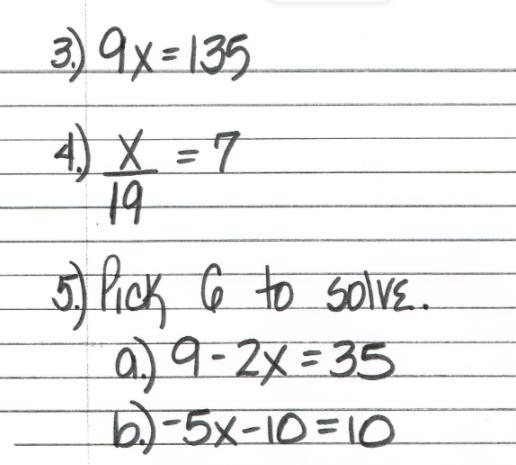 3.) 9x=135
4.) x/19 = 7
5.) Pick 6 to solve.
a.) 9-2x=35
b.) -5x-10=10